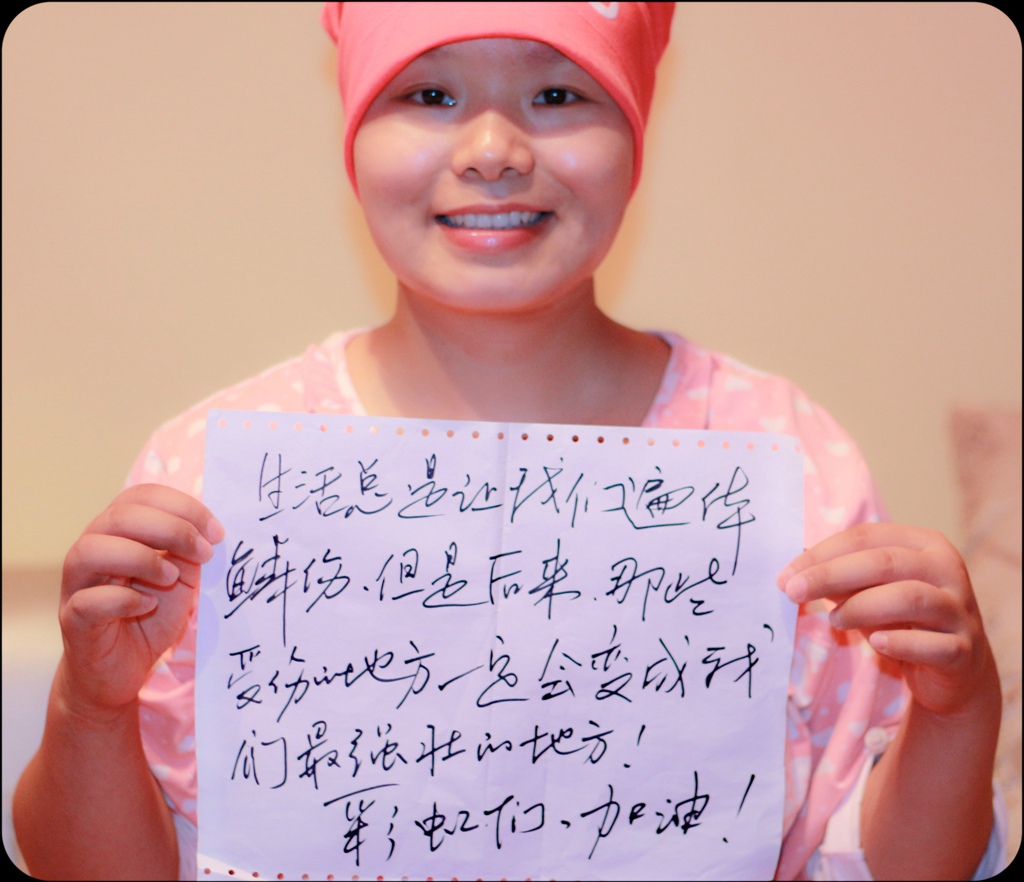 生活总是让我们遍体
鳞伤.但是后来.那些
受伤的地方一定会变成我
们最强壮的地方!
彩虹们、加油!